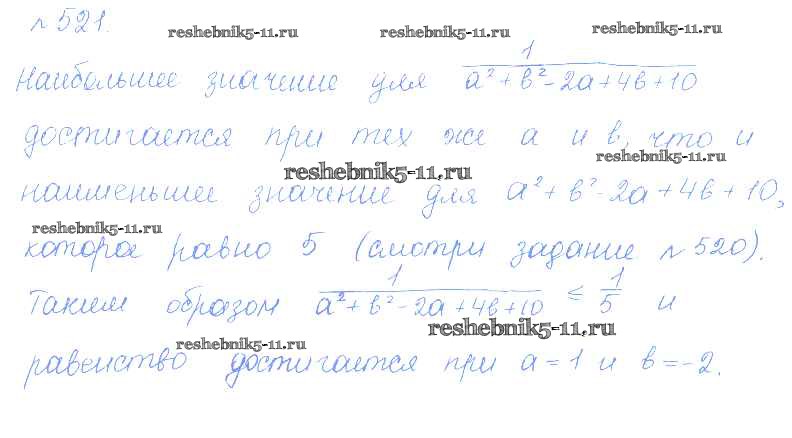 №521. reshebnik5-11.ru reshebnik5-11.ru reshebnik5-11.ru
Наибольшее значение для 1/(a² + b² - 2a + 4b + 10)
достигается при тех же a и b, что и
reshebnik5-11.ru reshebnik5-11.ru
наименьшее значение для a² + b² - 2a + 4b + 10,
reshebnik5-11.ru
которое равно 5 (смотри задание №520).
Таким образом 1/(a² + b² - 2a + 4b + 10) ≤ 1/5 и
reshebnik5-11.ru reshebnik5-11.ru
равенство достигается при a = 1 и b = -2.